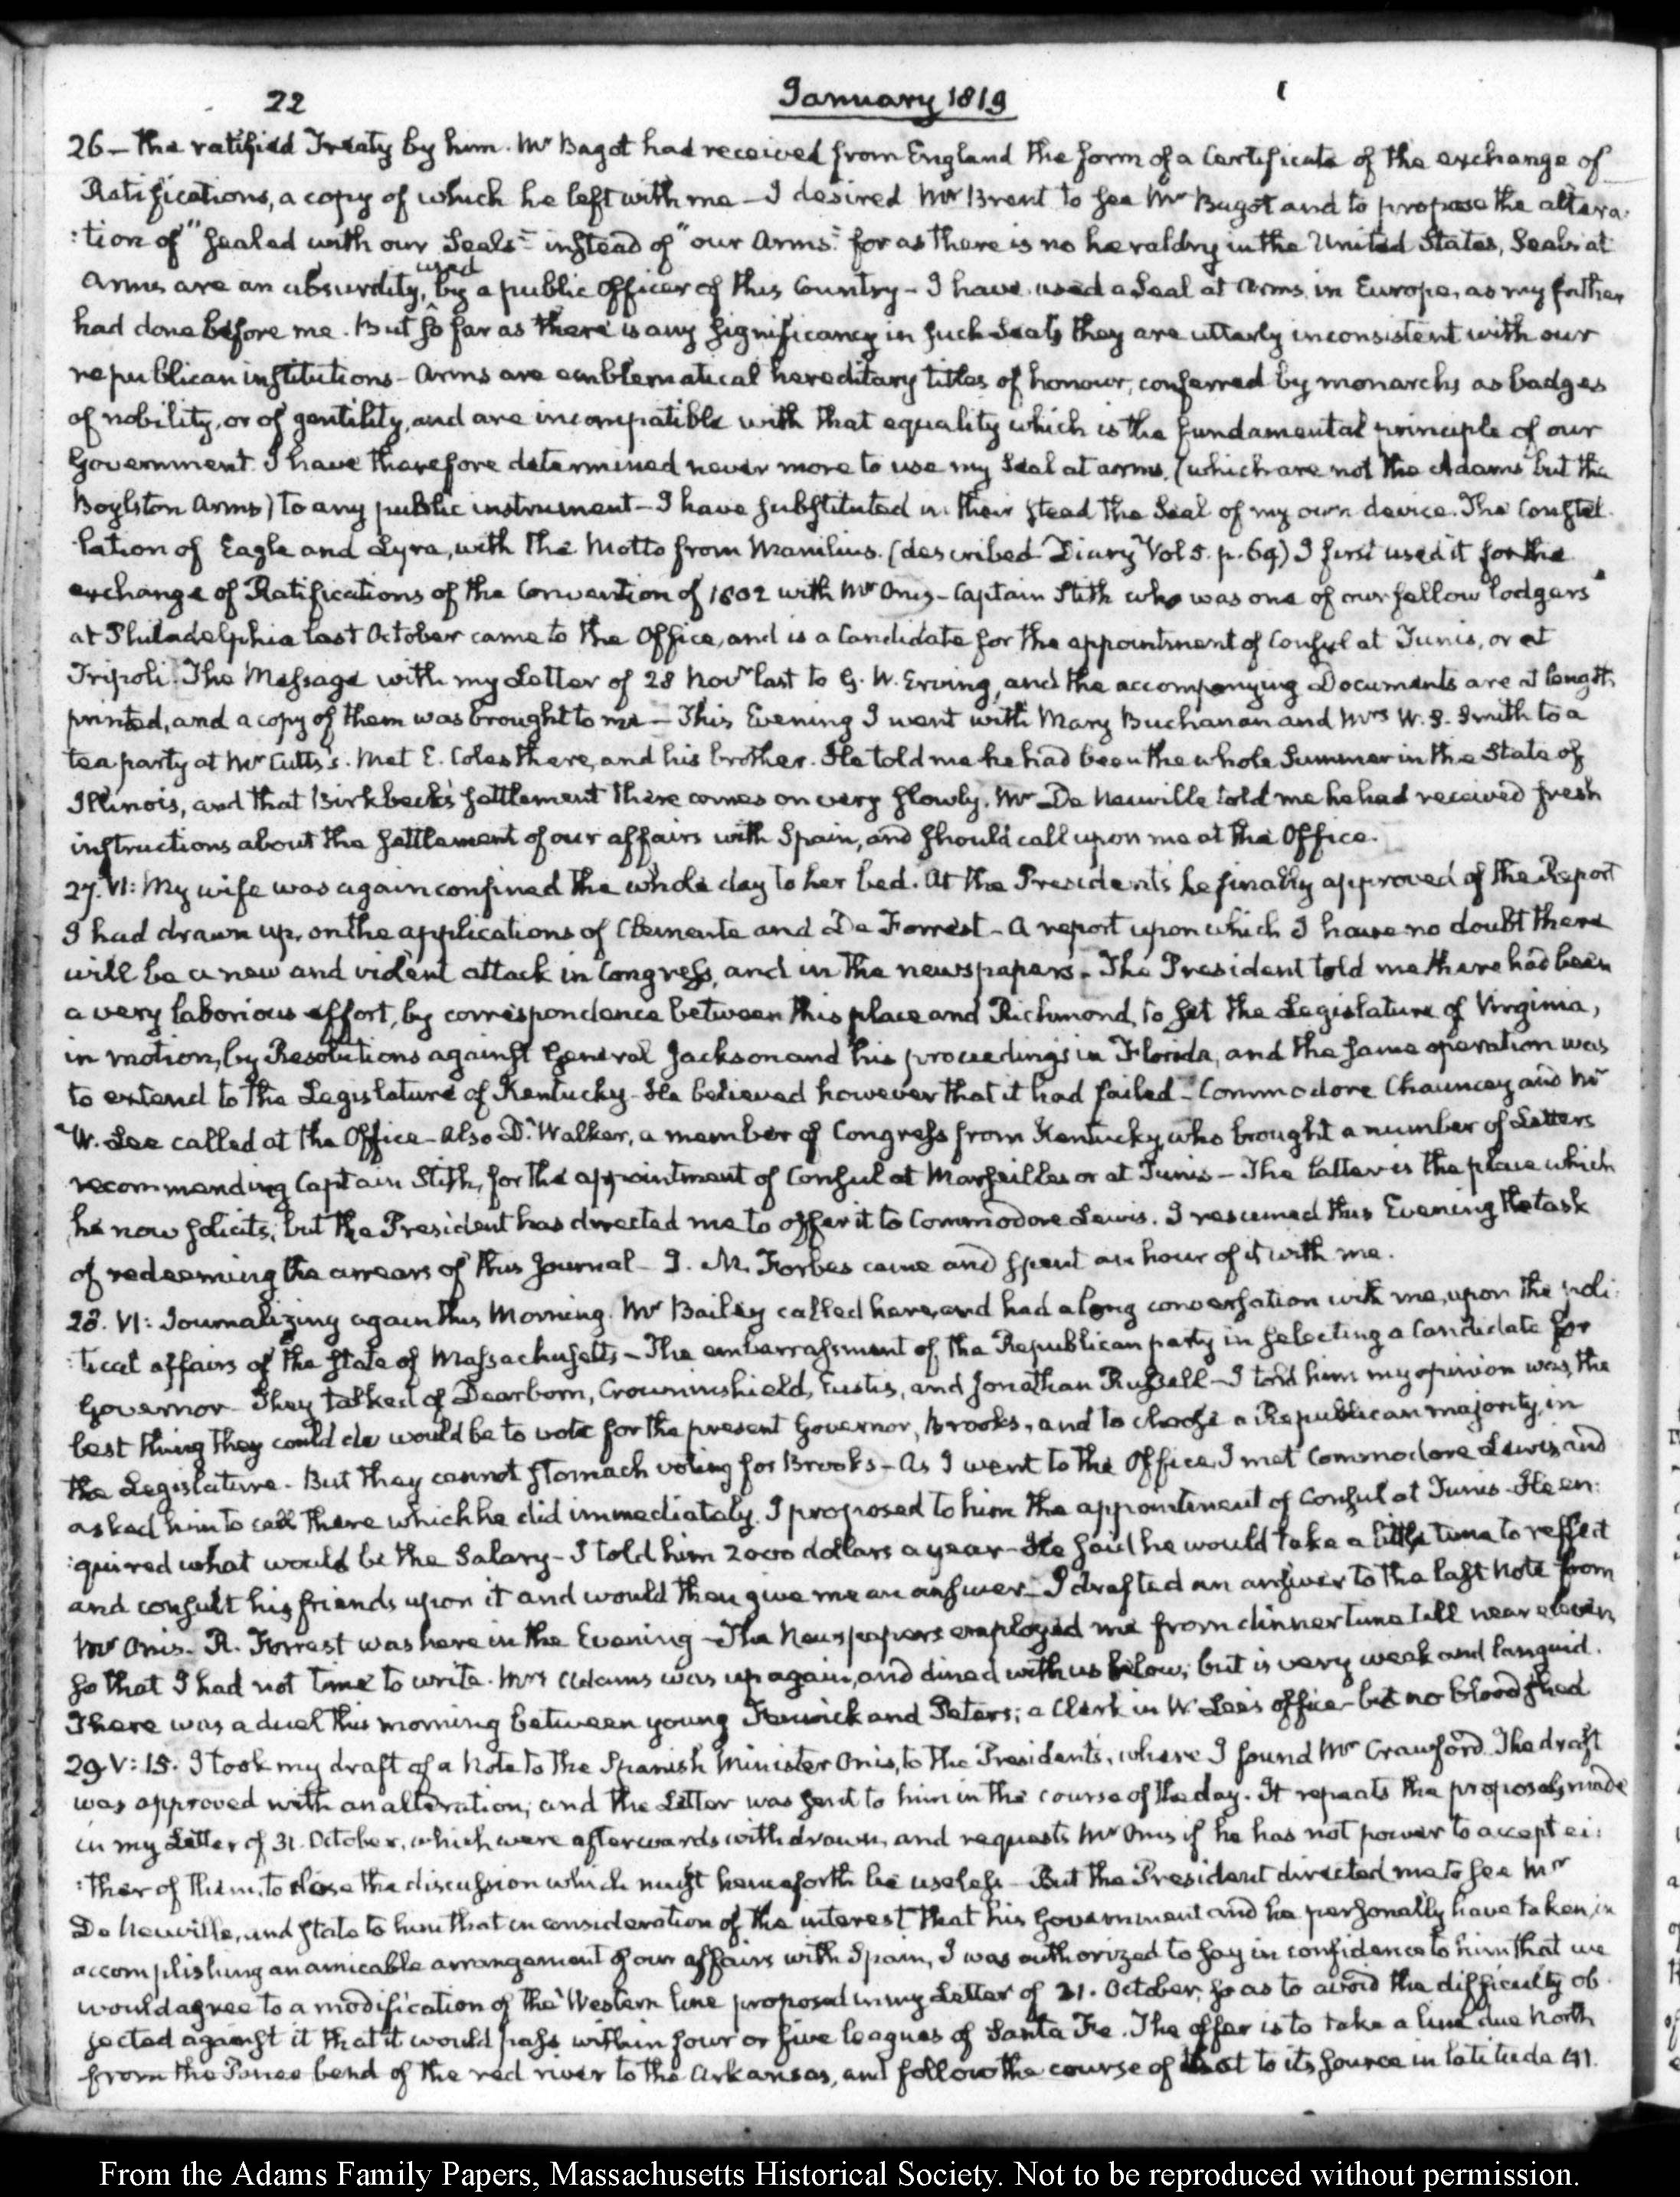 22
January 1819
26 – the ratified Treaty by him. Mr Bagot had received from England the form of a Certificate of the exchange of
Ratifications, a copy of which he left with me – I desired Mr Brent to see Mr Bagot and to propose the altera:
:tion of "Sealed with our Seals" instead of "our Arms" for as there is no heraldry in the United States, Seals at
Arms are an absurdity, used by a public Officer of this Country – I have used a Seal at Arms in Europe, as my father
had done before me. But so far as there is any significancy in such Seals they are utterly inconsistent with our
republican institutions – Arms are emblematical hereditary titles of honour, conferred by monarchs as badges
of nobility, or of gentility, and are incompatible with that equality which is the fundamental principle of our
Government. I have therefore determined never more to use my Seal at arms, (which are not the Adams but the
Boylston Arms) to any public instrument – I have substituted in their stead the Seal of my own device. The Constel
lation of Eagle and Lyra, with the Motto from Manilius. (described Diary Vol 5. p. 69) I first used it for the
exchange of Ratifications of the Convention of 1802 with Mr Onis – Captain Stith who was one of our fellow lodgers
at Philadelphia last October came to the Office, and is a Candidate for the appointment of Consul at Tunis, or at
Tripoli. The Message with my Letter of 28 Novr last to G. W. Erving, and the accompanying Documents are at length
printed, and a copy of them was brought to me – This Evening I went with Mary Buchanan and Mrs W. S. Smith to a
tea party at Mr Cutts's. Met E. Coles there, and his brother. He told me he had been the whole Summer in the State of
Illinois, and that Birkbeck's settlement there comes on very slowly. Mr De Neuville told me he had received fresh
instructions about the settlement of our affairs with Spain, and should call upon me at the Office.
27. VI: My wife was again confined the whole day to her bed. At the President's he finally approved of the Report
I had drawn up, on the applications of Clemente and De Forrest – A report upon which I have no doubt there
will be a new and violent attack in Congress, and in the newspapers – The President told me there had been
a very laborious effort, by correspondence between this place and Richmond, to set the Legislature of Virginia,
in motion, by Resolutions against General Jackson and his proceedings in Florida, and the same operation was
to extend to the Legislature of Kentucky – He believed however that it had failed – Commodore Chauncey and Mr
W. Lee called at the Office – Also Dr Walker, a member of Congress from Kentucky, who brought a number of Letters
recommending Captain Stith, for the appointment of Consul at Marseilles or at Tunis – The latter is the place which
he now solicits; but the President has directed me to offer it to Commodore Lewis. I resumed this Evening the task
of redeeming the arrears of this Journal – J. M. Forbes came and spent an hour of it with me.
28. VI: Journalizing again this Morning. Mr Bailey called here, and had a long conversation with me, upon the poli:
:tical affairs of the State of Massachusetts – The embarrassment of the Republican party in selecting a Candidate for
Governor – They talked of Dearborn, Crowninshield, Eustis, and Jonathan Russell – I told him my opinion was, the
best thing they could do would be to vote for the present Governor, Brooks, and to choose a Republican majority, in
the Legislature. But they cannot stomach voting for Brooks – As I went to the Office, I met Commodore Lewis, and
asked him to call there which he did immediately. I proposed to him the appointment of Consul at Tunis – He en:
:quired what would be the Salary – I told him 2000 dollars a year – He said he would take a little time to reflect
and consult his friends upon it and would then give me an answer – I drafted an answer to the last Note from
Mr Onis – R. Forrest was here in the Evening – The Newspapers employed me from dinner time till near eleven,
so that I had not time to write. Mrs Adams was up again, and dined with us below; but is very weak and languid.
There was a duel this morning between young Fenwick and Peters; a Clerk in W Lee's office – but no bloodshed
29. V: 15. I took my draft of a Note to the Spanish Minister Onis, to the President's, where I found Mr Crawford. The draft
was approved with an alteration; and the Letter was sent to him in the course of the day. It repeats the proposals made
in my Letter of 31. October, which were afterwards withdrawn, and requests Mr Onis if he has not power to accept ei:
:ther of them, to close the discussion which must henceforth be useless – But the President directed me to see Mr
De Neuville, and state to him that in consideration of the interest that his Government and he personally have taken, in
accomplishing an amicable arrangement of our affairs with Spain, I was authorized to say in confidence to him that we
would agree to a modification of the Western line proposed in my Letter of 31. October, so as to avoid the difficulty ob
jected against it that it would pass within four or five leagues of Santa Fe. The offer is to take a line due North
from the Panee bend of the red river to the Arkansas, and follow the course of that to its source in latitude 41.
From the Adams Family Papers, Massachusetts Historical Society. Not to be reproduced without permission.